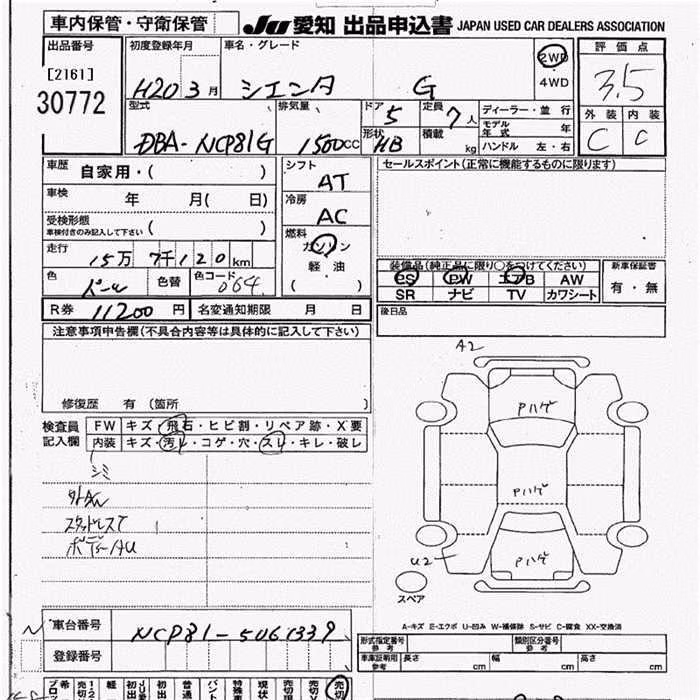 車内保管・守衛保管 JU愛知 出品申込書 JAPAN USED CAR DEALERS ASSOCIATION
出品番号 初度登録年月 車名・グレード 2WD 評価点
[2161] H20 3月 シエンタ G 4WD 3.5
30772 型式 排気量 ドア 5 定員 7人 ディーラー・並行 外装 内装
DBA-NCP81G 1500CC 形状 HB 積載 kg モデル年式 年 C C
ハンドル 左・右
車歴 自家用・( ) シフト AT セールスポイント(正常に機能するものに限ります)
車検 年 月( 日) 冷房 AC
受検形態 車検付きのみ記入して下さい ( )
走行 15万7千120km 燃料 ガソリン 装備品(純正品に限り○をつけてください) 新車保証書
色 パール 色替 色コード 064 軽油 ( ) PS PW エアB AW 有・無
SR ナビ TV カワシート
R券 11200円 名変通知期限 月 日 後日品
注意事項申告欄(不具合内容等は具体的に記入して下さい)
修復歴 有 (箇所 )
A2
検査員記入欄 FW キズ・飛石・ヒビ割・リペア跡・X要
内装 キズ・汚レ・コゲ・穴・スレ・キレ・破レ
シミ
外AW
スタッドレスT
ボデーAU
Pハゲ
Pハゲ
Pハゲ
U2
スペア
A-キズ E-エクボ U-凹み W-補修跡 S-サビ C-腐食 XX-交換済
車台番号 NCP81-5061339
登録番号
形式指定番号 参考 類別区分番号 参考
車庫証明用 参考 長さ cm 幅 cm 高さ cm